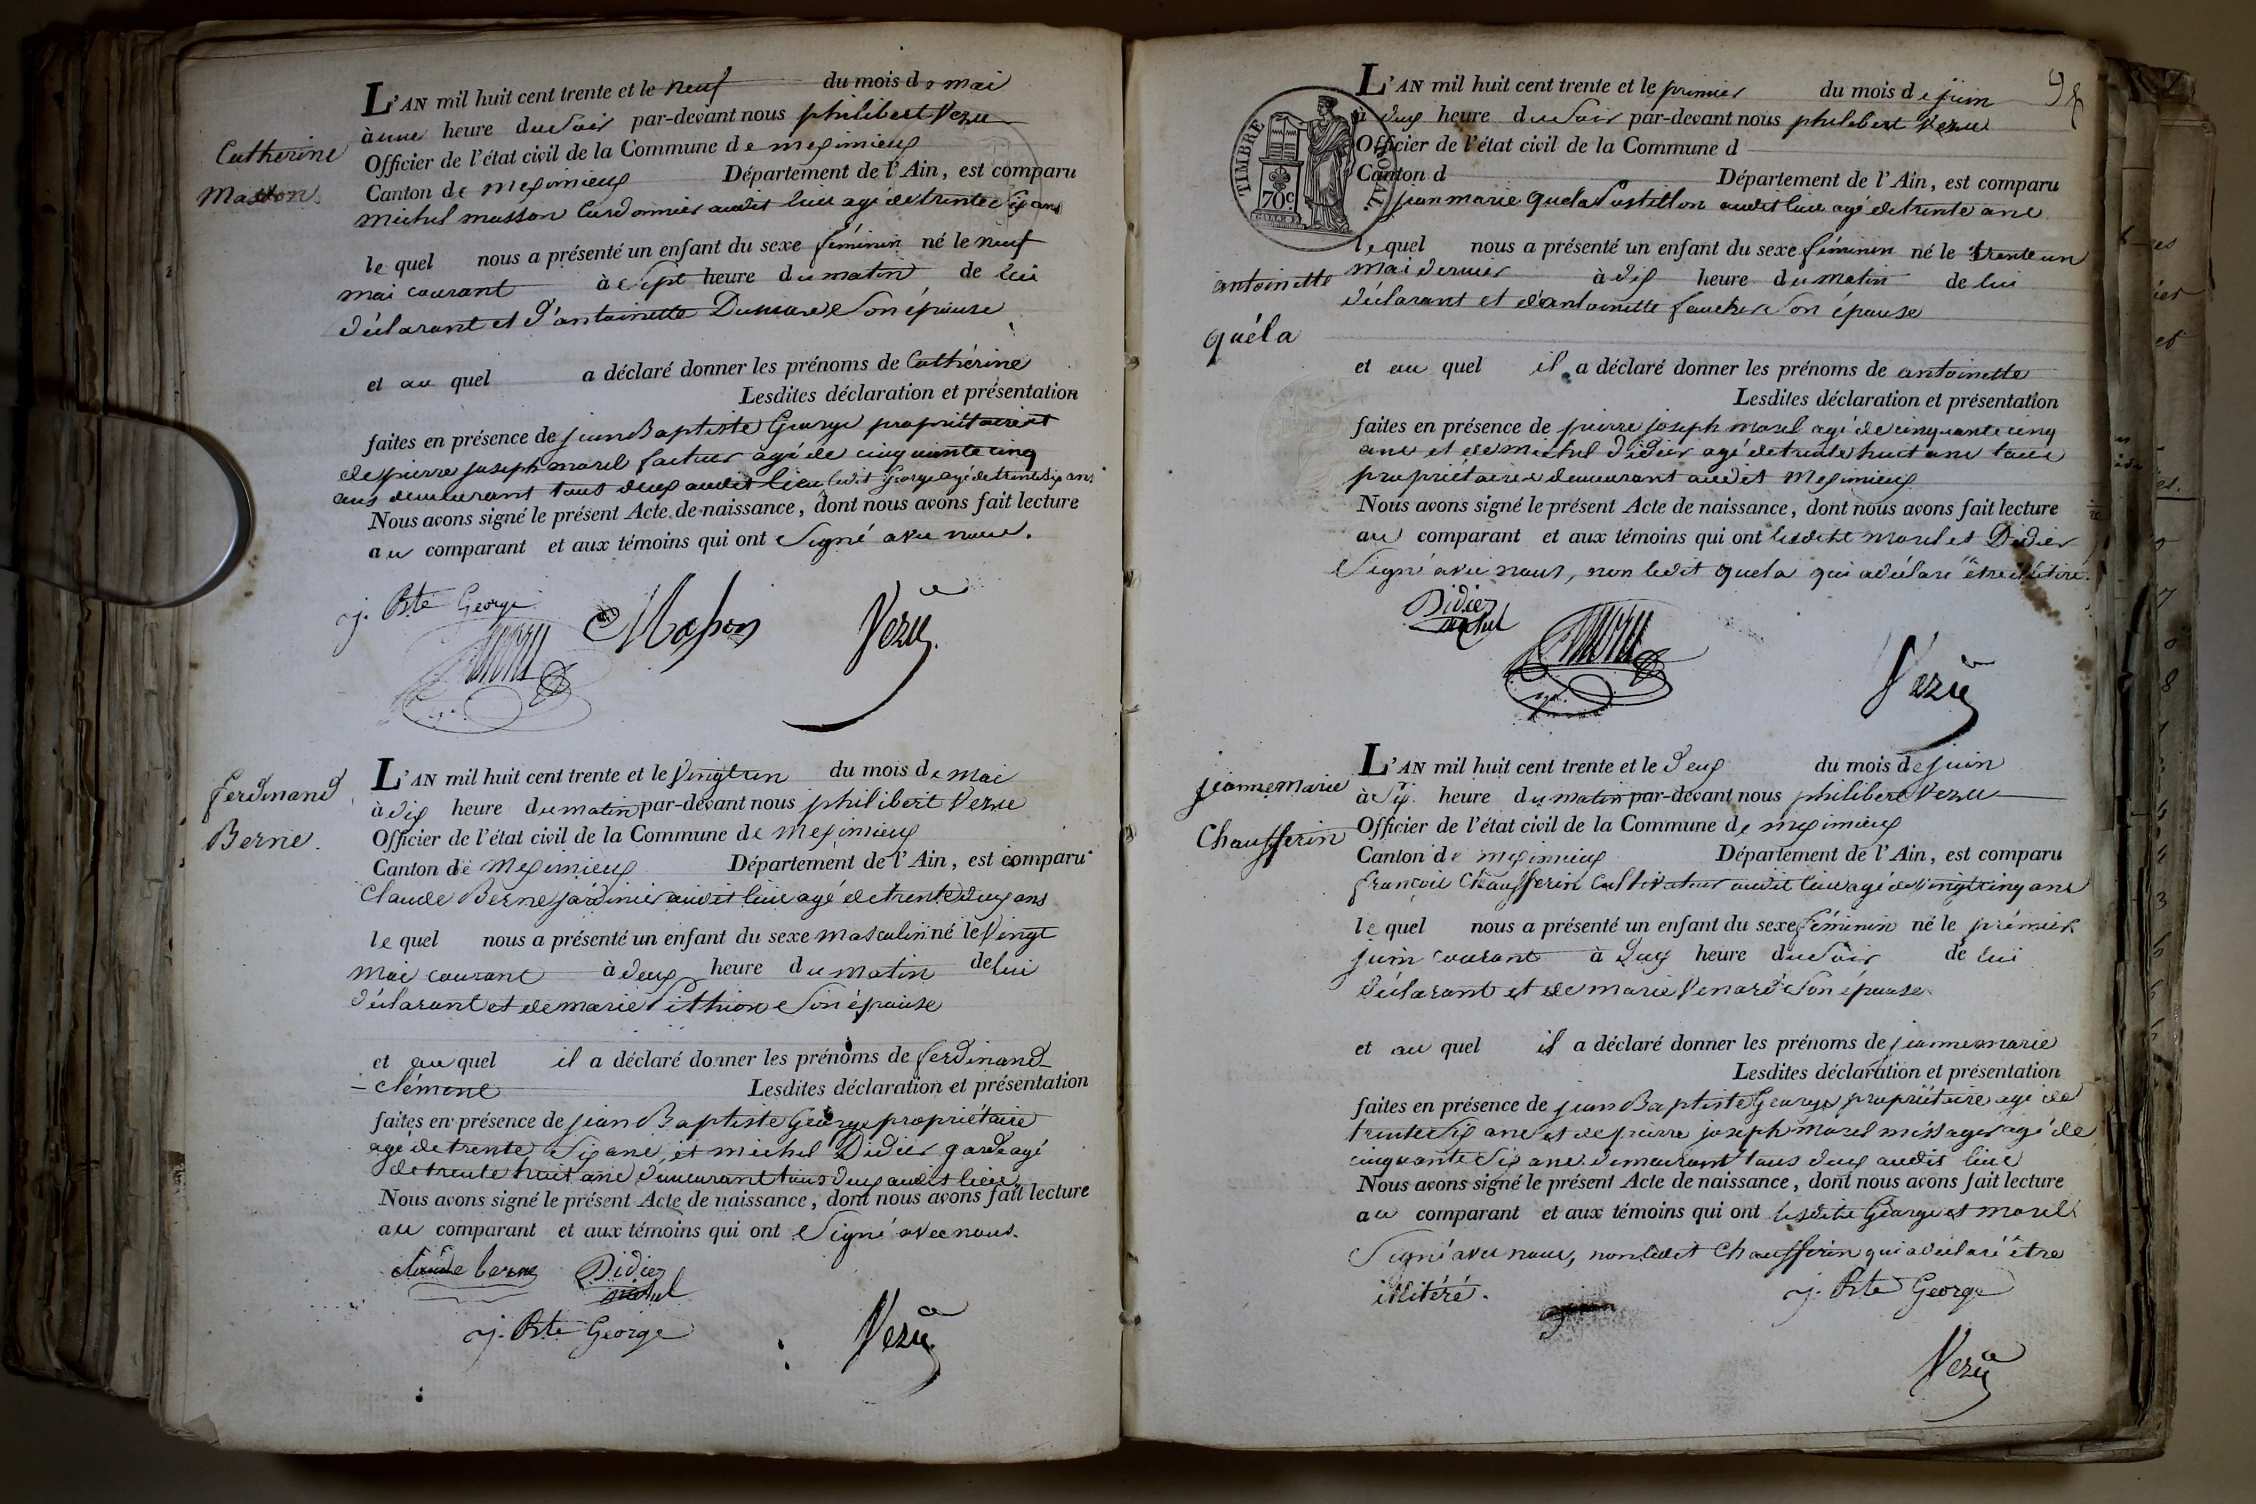 Catherine
Masson
L'AN mil huit cent trente et le neuf du mois de mai
à une heure du soir par-devant nous philibert Vezu
Officier de l'état civil de la Commune de meximieux
Canton de meximieux Département de l'Ain, est comparu
michel masson Cordonnier audit lieu agé de trente six ans
le quel nous a présenté un enfant du sexe féminin né le neuf
mai courant à sept heure du matin de lui
déclarant et d'antoinette son épouse
et au quel a déclaré donner les prénoms de Cathérine
Lesdites déclaration et présentation
faites en présence de jean Baptiste George propriétaire et
de pierre joseph morel facteur agé de cinquante cinq
ans demeurant tous deux audit lieu ledit George agé de trente six ans
Nous avons signé le présent Acte de naissance, dont nous avons fait lecture
au comparant et aux témoins qui ont signé avec nous.
j. Bte George
Masson Vezu
ferdinand
Berne.
L'AN mil huit cent trente et le vingt un du mois de mai
à dix heure du matin par-devant nous philibert Vezu
Officier de l'état civil de la Commune de meximieux
Canton de meximieux Département de l'Ain, est comparu
Claude Berne jardinier audit lieu agé de trente deux ans
le quel nous a présenté un enfant du sexe masculin né le vingt
mai courant à deux heure du matin de lui
déclarant et de marie Pithion son épouse
et au quel il a déclaré donner les prénoms de ferdinand
- clément Lesdites déclaration et présentation
faites en présence de jean Baptiste George propriétaire
agé de trente six ans, et michel Didier garde agé
de trente huit ans demeurant tous deux audit lieu
Nous avons signé le présent Acte de naissance, dont nous avons fait lecture
au comparant et aux témoins qui ont signé avec nous.
claude berne Didier
michel
j. Bte George Vezu
98
TIMBRE ROYAL.
70c
L'AN mil huit cent trente et le premier du mois de juin
à deux heure du soir par-devant nous philibert Vezu
Officier de l'état civil de la Commune d
Canton d Département de l'Ain, est comparu
jean marie quela Postillon audit lieu agé de trente ans
le quel nous a présenté un enfant du sexe féminin né le trente un
antoinette
quéla
mai dernier à dix heure du matin de lui
déclarant et d'antoinette faucher son épouse
et au quel il a déclaré donner les prénoms de antoinette
Lesdites déclaration et présentation
faites en présence de pierre joseph morel agé de cinquante cinq
ans et de michel Didier agé de trente huit ans tous
propriétaires demeurant audit Meximieux
Nous avons signé le présent Acte de naissance, dont nous avons fait lecture
au comparant et aux témoins qui ont lesdits morel et Didier
signé avec nous, non ledit quela qui a déclaré être illitéré.
Didier
michel
Vezu
jeanne marie
Chaufferin
L'AN mil huit cent trente et le deux du mois de juin
à six heure du matin par-devant nous philibert Vezu
Officier de l'état civil de la Commune de meximieux
Canton de meximieux Département de l'Ain, est comparu
françois Chaufferin Cultivateur audit lieu agé de vingt cinq ans
le quel nous a présenté un enfant du sexe féminin né le prémier
juin courant à deux heure du soir de lui
déclarant et de marie Venard son épouse
et au quel il a déclaré donner les prénoms de jeanne marie
Lesdites déclaration et présentation
faites en présence de jean Baptiste George propriétaire agé de
trente six ans et de pierre joseph morel messager agé de
cinquante six ans demeurant tous deux audit lieu
Nous avons signé le présent Acte de naissance, dont nous avons fait lecture
au comparant et aux témoins qui ont lesdits George et morel
signé avec nous, non ledit Chaufferin qui a déclaré être
illitéré. j. Bte George
Vezu